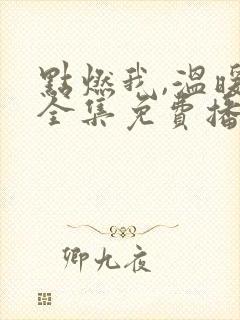 點燃我,溫暖
全集免費播
卿九夜